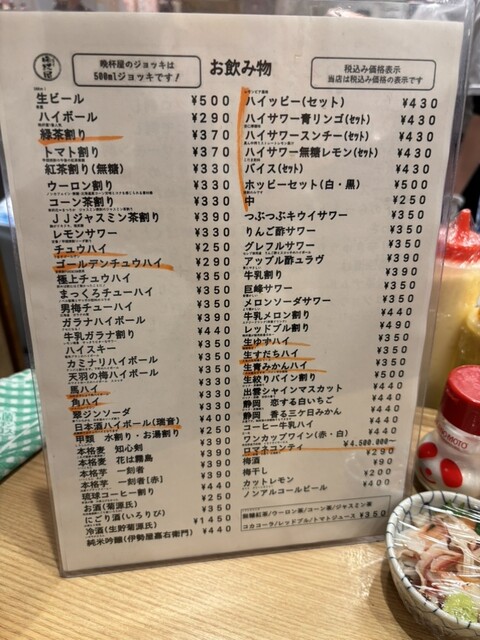 晩杯屋
晩杯屋のジョッキは
500mlジョッキです!
お飲み物
税込み価格表示
当店は税込み価格の表示です
生ビール ¥500
ハイボール ¥290
緑茶割り ¥370
トマト割り ¥370
紅茶割り(無糖) ¥330
ウーロン割り ¥330
コーン茶割り ¥330
JJジャスミン茶割り ¥390
レモンサワー ¥330
チュウハイ ¥250
ゴールデンチュウハイ ¥290
極上チュウハイ ¥350
まっくろチューハイ ¥350
男梅チューハイ ¥350
ガラナハイボール ¥390
牛乳ガラナ割り ¥440
ハイスキー ¥350
カミナリハイボール ¥350
天羽の梅ハイボール ¥350
馬ハイ ¥330
角ハイ ¥330
翠ジンソーダ ¥330
日本酒ハイボール(瑞音) ¥400
甲類 水割り・お湯割り ¥250
本格麦 知心剣 ¥390
本格芋 花は霧島 ¥390
本格芋 一刻者 ¥390
本格芋 一刻者(赤) ¥390
琉球コーヒー割り ¥440
お酒(菊源氏) ¥250
にごり酒(いろりび) ¥350
冷酒(生貯菊源氏) ¥1450
純米吟醸(伊勢屋嘉右衛門) ¥440
ハイッピー(セット) ¥430
ハイサワー青リンゴ(セット) ¥430
ハイサワースンチー(セット) ¥430
ハイサワー無糖レモン(セット) ¥430
バイス(セット) ¥430
ホッピーセット(白・黒) ¥500
中 ¥250
つぶつぶキウイサワー ¥350
りんご酢サワー ¥350
グレフルサワー ¥350
アップル酢ユラヴ ¥390
牛乳割り ¥390
巨峰サワー ¥350
メロンソーダサワー ¥350
牛乳メロン割り ¥440
レッドブル割り ¥490
生ゆずハイ ¥350
生すだちハイ ¥350
生青みかんハイ ¥350
生絞りパイン割り ¥500
出雲シャインマスカット ¥440
静岡 恋する白いちご ¥440
静岡 香る三ケ日みかん ¥440
コーヒー牛乳ハイ ¥440
ワンカップワイン(赤・白) ¥440
ロマネコンティ ¥4,500,000〜
梅酒 ¥290
梅干し ¥90
カットレモン ¥200
ノンアルコールビール ¥400
無糖紅茶/ウーロン茶/コーン茶/ジャスミン茶
コカコーラ/レッドブル/トマトジュース ¥350